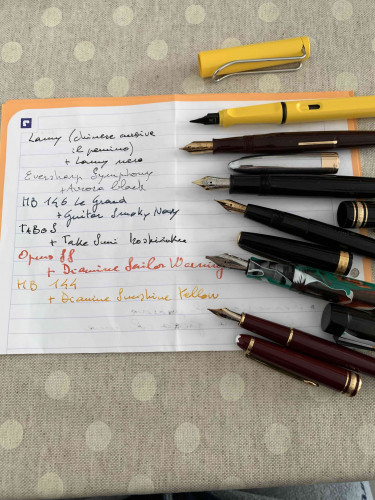 Lamy (chinese cursive
il pennino)
+ Lamy nero
Eversharp Symphony
+ Aurora black
MB 146 Le Grand
+ Guitar Smoky Navy
TABO S
+ Take Sumi Iroshizuku
Opus 88
+ Diamine Sailor Warning
MB 144
+ Diamine Sunshine Yellow